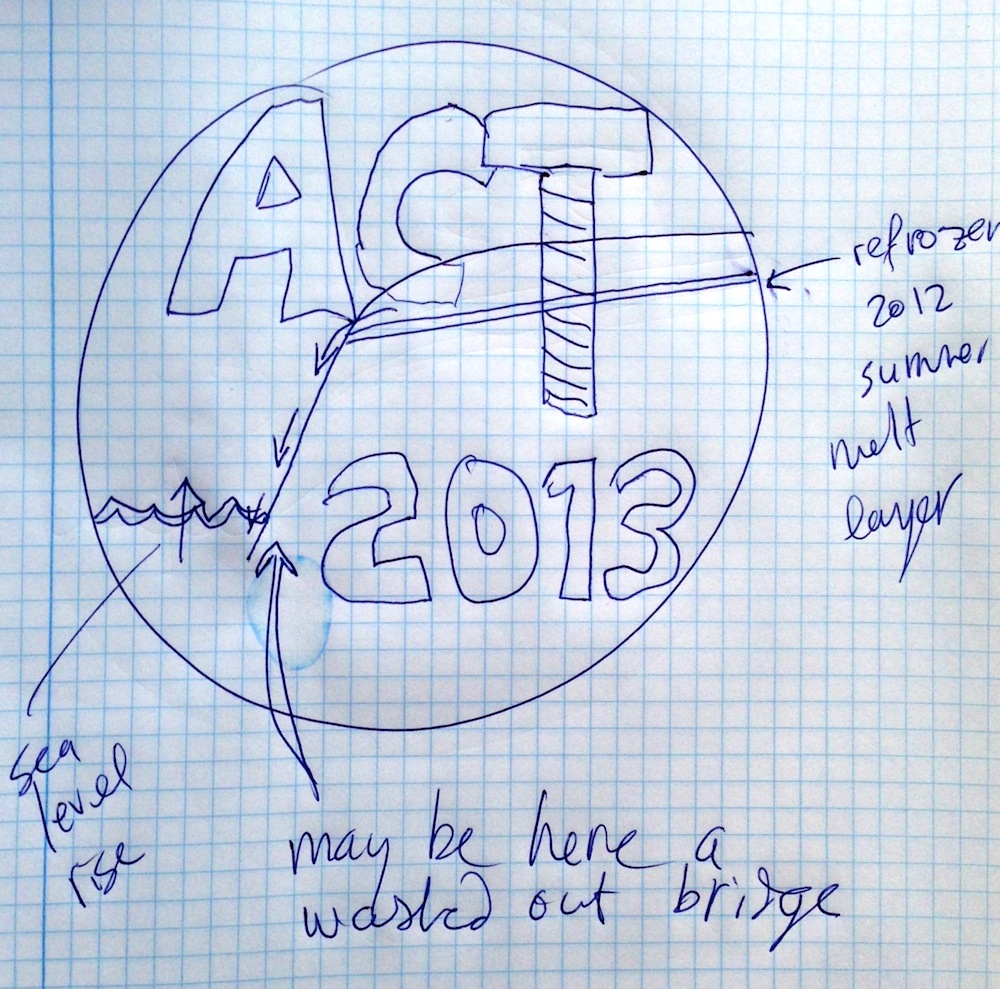 ACT
2013
refrozen
2012
summer
melt
layer
sea
level
rise
may be here a
washed out bridge